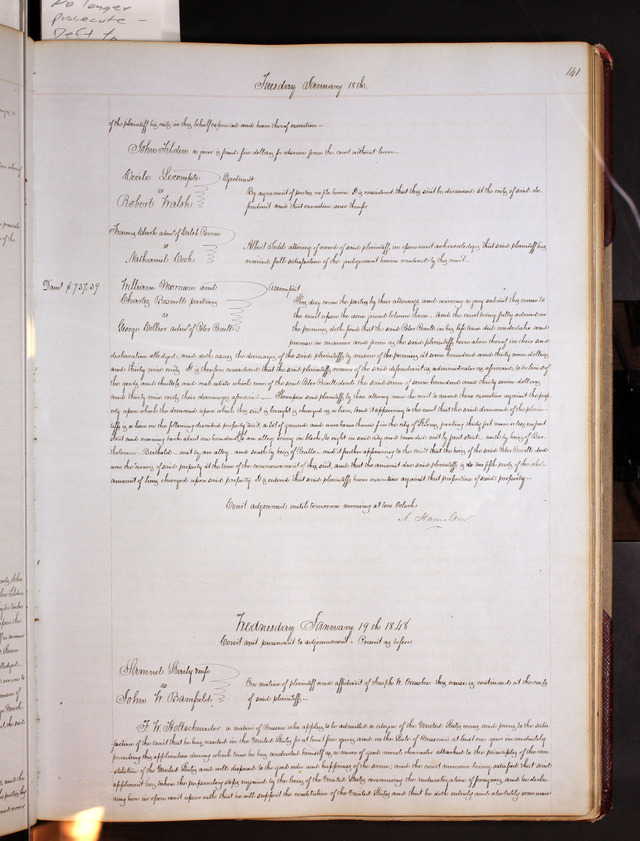 No longer
prosecute -
Deft to
141
Tuesday January 18th.
of the plaintiff his costs in this behalf expended and have thereof execution -
John Tilden a juror is fined five dollars for absence from the court without leave
Ejectment
By agreement of parties in file herein It is considered that this suit be dismissed at the costs of said de
Robert Walsh
fendant and that execution issue therefor
Francis admr of
vs
Nathaniel
Albert Todd attorney of record of said plaintiff, in open court acknowledges that said plaintiff has
received full satisfaction of the judgement herein rendered by this court.
Dam $737.39
William Morrison and
Assumpsit
Charles partners
This day come the parties by their attorneys and waiving a jury submit this cause to
vs
the court upon the issue joined between them. And the court being fully advised in
George Collier admr of Peter Powell
the premises, doth find that the said Peter Powell in his life time did undertake and
promise in manner and form as the said plaintiffs have above thereof in their said
declaration alledged, and doth assess the damages of the said plaintiffs by reason of the premises at seven hundred and thirty seven dollars
and thirty nine cents. It is therefore considered that the said plaintiffs recover of the said defendant as administrator as aforesaid, to be levied of
the goods and chattels and real estate which were of the said Peter Powell dec'd the said sum of seven hundred and thirty seven dollars
and thirty nine cents, their damages aforesaid. Thereupon said plaintiffs by their attorney move the court to award them execution against the prop
erty upon which the demand upon which this suit is brought is charged as a lien, and it appearing to the court that the said demand of the plain-
tiffs is a lien on the following described property to wit, a lot of ground and ware house thereon in the city of St Louis, fronting thirty feet more or less on front
street and running back about one hundred to an alley being in block No eight in said city and bounded east by front street - north by heirs of Bar
tholomew Berthold - west by an alley - and south by heirs of - and it further appearing to the court that the heirs of the said Peter Powell dec'd
were the owners of said property at the time of the commencement of this suit, and that the amount due said plaintiffs is fifth parts of the whole
amount of lien charged upon said property It is ordered that said plaintiffs have execution against that proportion of said property -
Court adjourned until tomorrow morning at ten oclock
A. Hamilton
Wednesday January 19th 1848
Court met pursuant to adjournment - Present as before
Samuel
vs
On motion of plaintiff and affidavit of Joseph W. this cause is continued at the costs
John W. Bamfield
of said plaintiff -
F. W. a native of Prussia who applies to be admitted a citizen of the United States, comes and proves to the satis
faction of the court that he has resided in the United States for at least five years and in the State of Missouri at least one year immediately
preceding this application during which time he has conducted himself as a man of good moral character attached to the principles of the con
stitution of the United States and well disposed to the good order and happiness of the same, and the court moreover being satisfied that said
applicant has taken the preparatory steps required by the laws of the United States concerning the naturalization of foreigners, and he declar
ing here in open court upon oath that he will support the constitution of the United States and that he doth entirely and absolutely renounce